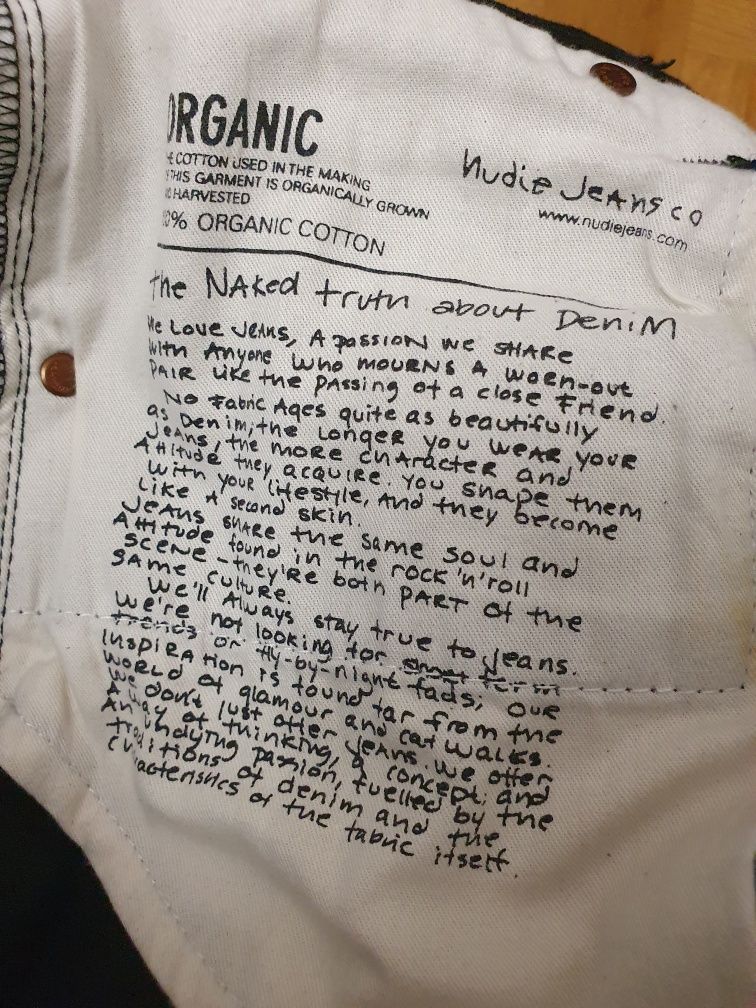 ORGANIC
E COTTON USED IN THE MAKING
THIS GARMENT IS ORGANICALLY GROWN
HARVESTED
0% ORGANIC COTTON
Nudie Jeans co
www.nudiejeans.com
the NAKed truth about DeniM
We Love Jeans, A passion we SHARE
with Anyone who mourns A worn-out
PAIR Like the passing of a close Friend.
No Fabric Ages quite as beautifully
as Denim, the Longer you wear your
Jeans, the more character and
Attitude they acquire. You shape them
with your lifestyle, and they become
Like A second skin.
Jeans share the same soul and
Attitude found in the rock 'n' roll
scene - they're both part of the
same culture.
We'll Always stay true to jeans.
We're not looking for short term
trends or fly-by-night fads; our
inspiration is found far from the
world of glamour and catwalks.
We don't just offer jeans. We offer
A way of thinking, a concept; and
An undying passion, fuelled by the
traditions of denim and the
characteristics of the fabric itself.